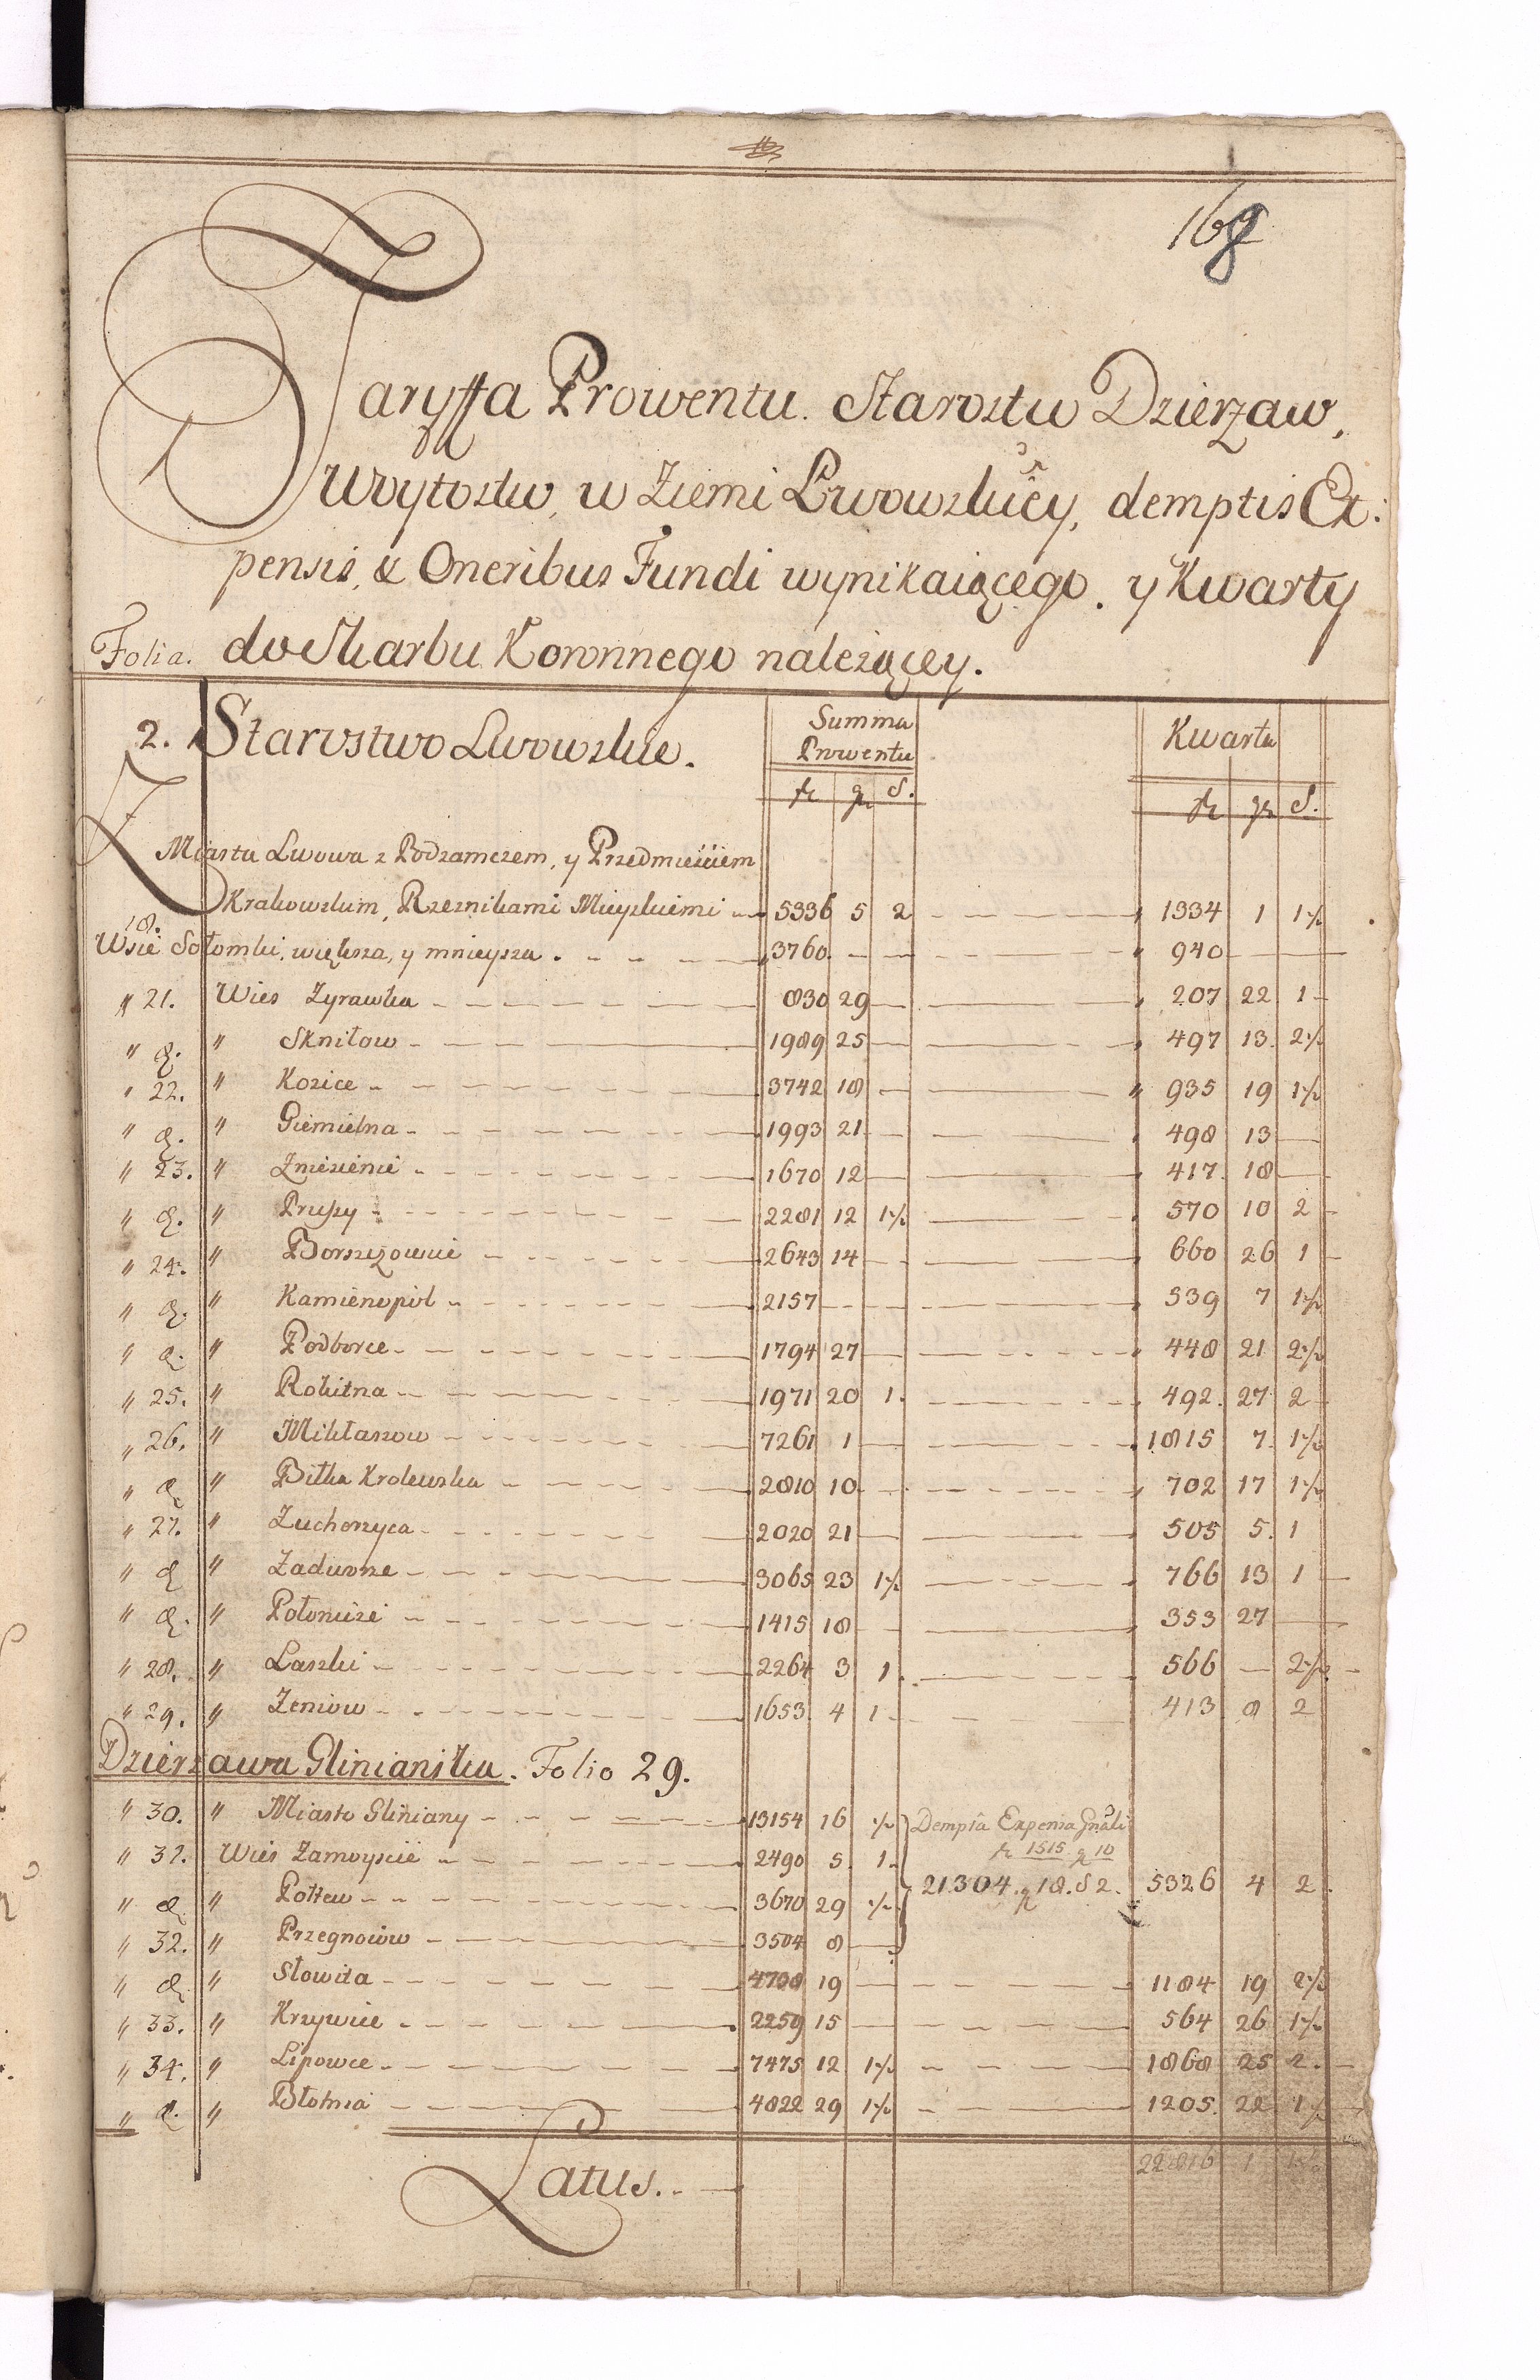 Taryffa Prowentu Starostw Dzierzaw,
Woytostw, w Ziemi Lwowskiey, demptis Ex:
pensis, & Oneribus Fundi wynikaiącego, y Kwarty
Folia. do Skarbu Koronnego należącey.
2. Starostwo Lwowskie. Summa Prowentu Kwarta
fl gr S. fl gr S.
Z Miasta Lwowa z Podzamczem, y Przedmieściem
18. Krakowskim, Rzeznikami Mieyskiemi 5336 5 2 1334 1 1 1/2
Wsie Sołomki, większa, y mnieysza 3760 940
" 21. Wies Zyrawka 830 29 207 22 1
" d. " Skniłow 1989 25 497 13 2 1/2
" 22. " Kozice 3742 18 935 19 1 1/2
" d. " Siemielna 1993 21 498 13
" 23. " Zniesienie 1670 12 417 18
" d. " Prusy 2281 12 1 1/2 570 10 2
" 24. " Borszczowice 2643 14 660 26 1
" d. " Kamienopol 2157 539 7 1 1/2
" d. " Podborce 1794 27 448 21 2 1/2
" 25. " Rokitna 1971 20 1 492 27 2
" 26. " Mikłaszow 7261 1 1815 7 1 1/2
" d. " Biłka Krolewska 2810 10 702 17 1 1/2
" 27. " Zuchorzyca 2020 21 505 5 1
" d. " Zadworze 3065 23 1 1/2 766 13 1
" d. " Połonicze 1415 18 353 27
" 28. " Laszki 2264 3 1 566 — 2 1/2
" 29. " Zeniow 1653 4 1 413 8 2
Dzierzawa Glinianska. Folio 29.
" 30. " Miasto Gliniany 13154 16 1/2 Dempta Expensa Gnali
fl 1515 g 10
" 32. Wies Zamoyscie 2490 5 1
" d. " Połtew 3670 29 1/2 21304. g 18. S 2. 5326 4 2
" 32. " Przegnoiow 3504 8
" d. " Słowita 4738 19 1184 19 2 1/2
" 33. " Krzywice 2259 15 564 26 1 1/2
" 34. " Lipowce 7475 12 1 1/2 1868 25 2
" d. " Błotnia 4822 29 1 1/2 1205 22 1 1/2
Latus. 22816 1